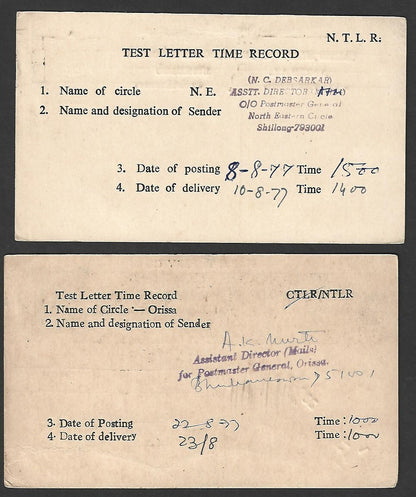 N. T. L. R.
TEST LETTER TIME RECORD
(N. C. DEBSARKAR)
1. Name of circle N. E. ASSTT. DIRECTOR
2. Name and designation of Sender O/O Postmaster General
North Eastern Circle
Shillong-793001
3. Date of posting 8-8-77 Time 1500
4. Date of delivery 10-8-77 Time 1400
Test Letter Time Record CTLR/NTLR
1. Name of Circle — Orissa
2. Name and designation of Sender
A.K. Murti
Assistant Director (Mails)
for Postmaster General, Orissa.
Bhubaneswar 751001
3. Date of Posting 22-8-77 Time: 1000
4. Date of delivery 23/8 Time: 1000